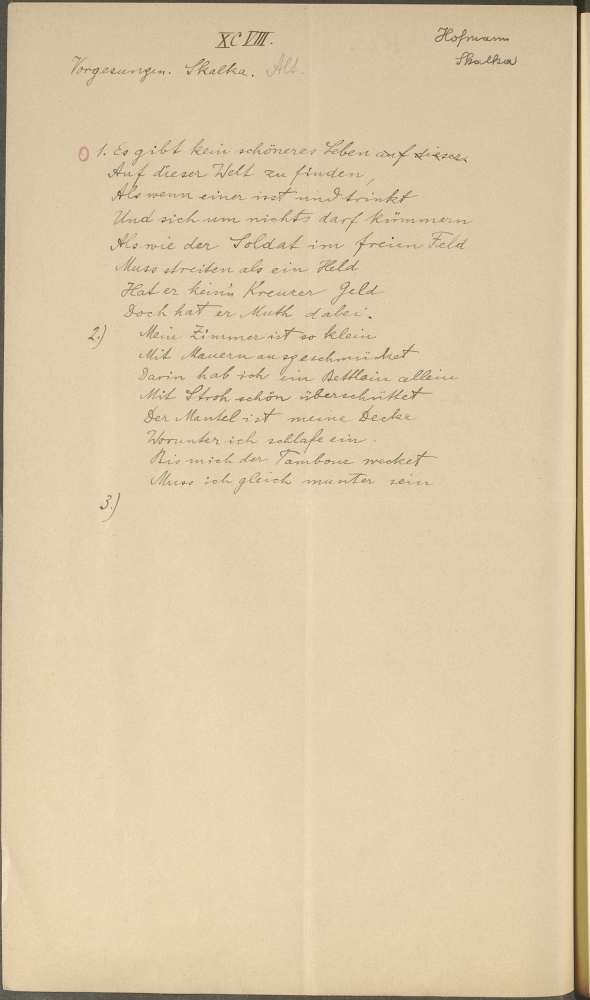 XCVIII.
Hofmann
Skalka
Vorgesungen. Skalka. Alt.
1. Es gibt kein schöneres Leben auf dieser
Auf dieser Welt zu finden,
Als wenn einer isst und trinkt
Und sich um nichts darf kümmern
Als wie der Soldat im freien Feld
Muss streiten als ein Held
Hat er kein'n Kreuzer Geld
Doch hat er Muth dabei.
2.) Mein Zimmer ist so klein
Mit Mauern ausgeschmücket
Darin hab ich ein Bettlein allein
Mit Stroh schön überschüttet
Der Mantel ist meine Decke
Worunter ich schlafe ein.
Bis mich der Tambour wecket
Muss ich gleich munter sein
3.)